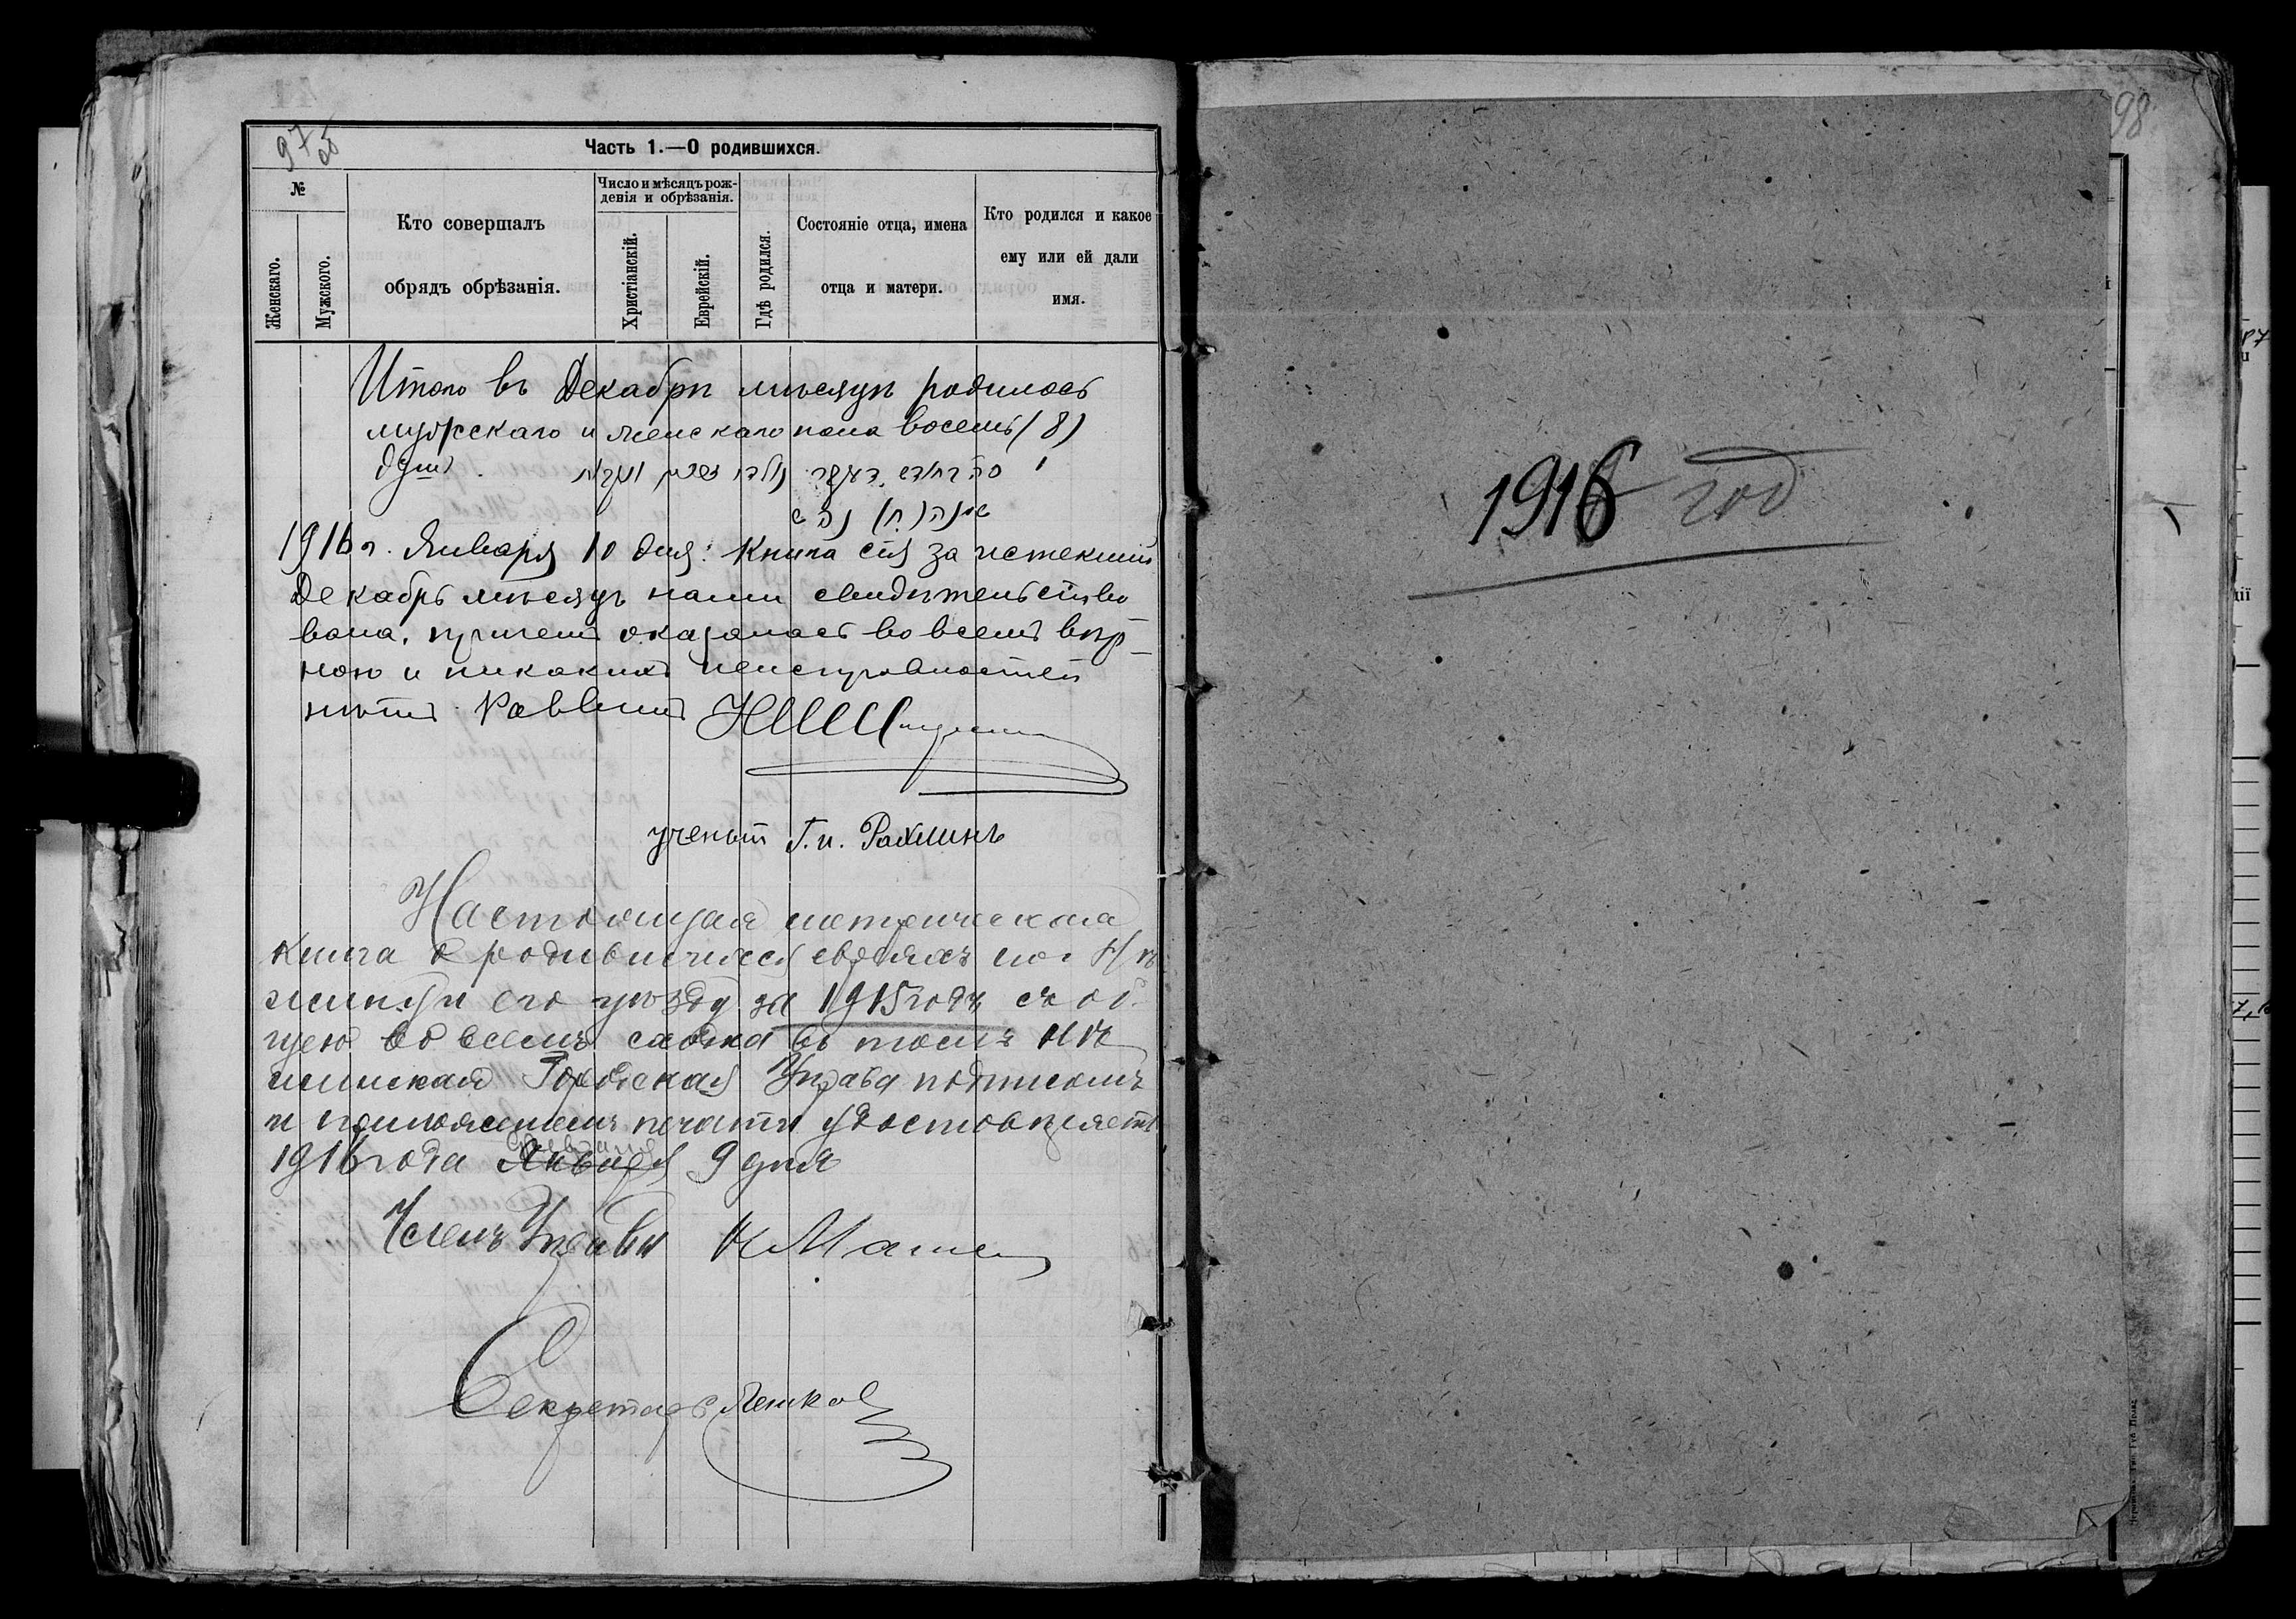 97 об
Часть 1.—О родившихся.
№
Женскаго.
Мужского.
Кто совершалъ
обрядъ обрѣзанія.
Число и мѣсяцъ рож-
денія и обрѣзанія.
Христіанскій.
Еврейскій.
Гдѣ родился.
Состояніе отца, имена
отца и матери.
Кто родился и какое
ему или ей дали
имя.
Итого въ Декабрѣ мѣсяцѣ родилось
мужскаго и женскаго пола восемь (8)
душъ.
1916 г. Января 10 дня: Книга сія за истекшій
Декабрь мѣсяцъ нами свидѣтельство
вана, причемъ оказалась во всемъ вѣр-
ною и никакихъ неисправностей
нѣтъ. Раввинъ
ученый Г. и. Рахлинъ
Настоящая метрическая
книга о родившихся евреяхъ по г Нѣ
жину и его уѣзду за 1915 годъ съ об
щею во всемъ сходна въ томъ Нѣ
жинская Городская Управа подписомъ
и приложеніемъ печати удостовѣряетъ
1916 года Января 9 дня
Членъ Управы
Секретарь
98
1916 год